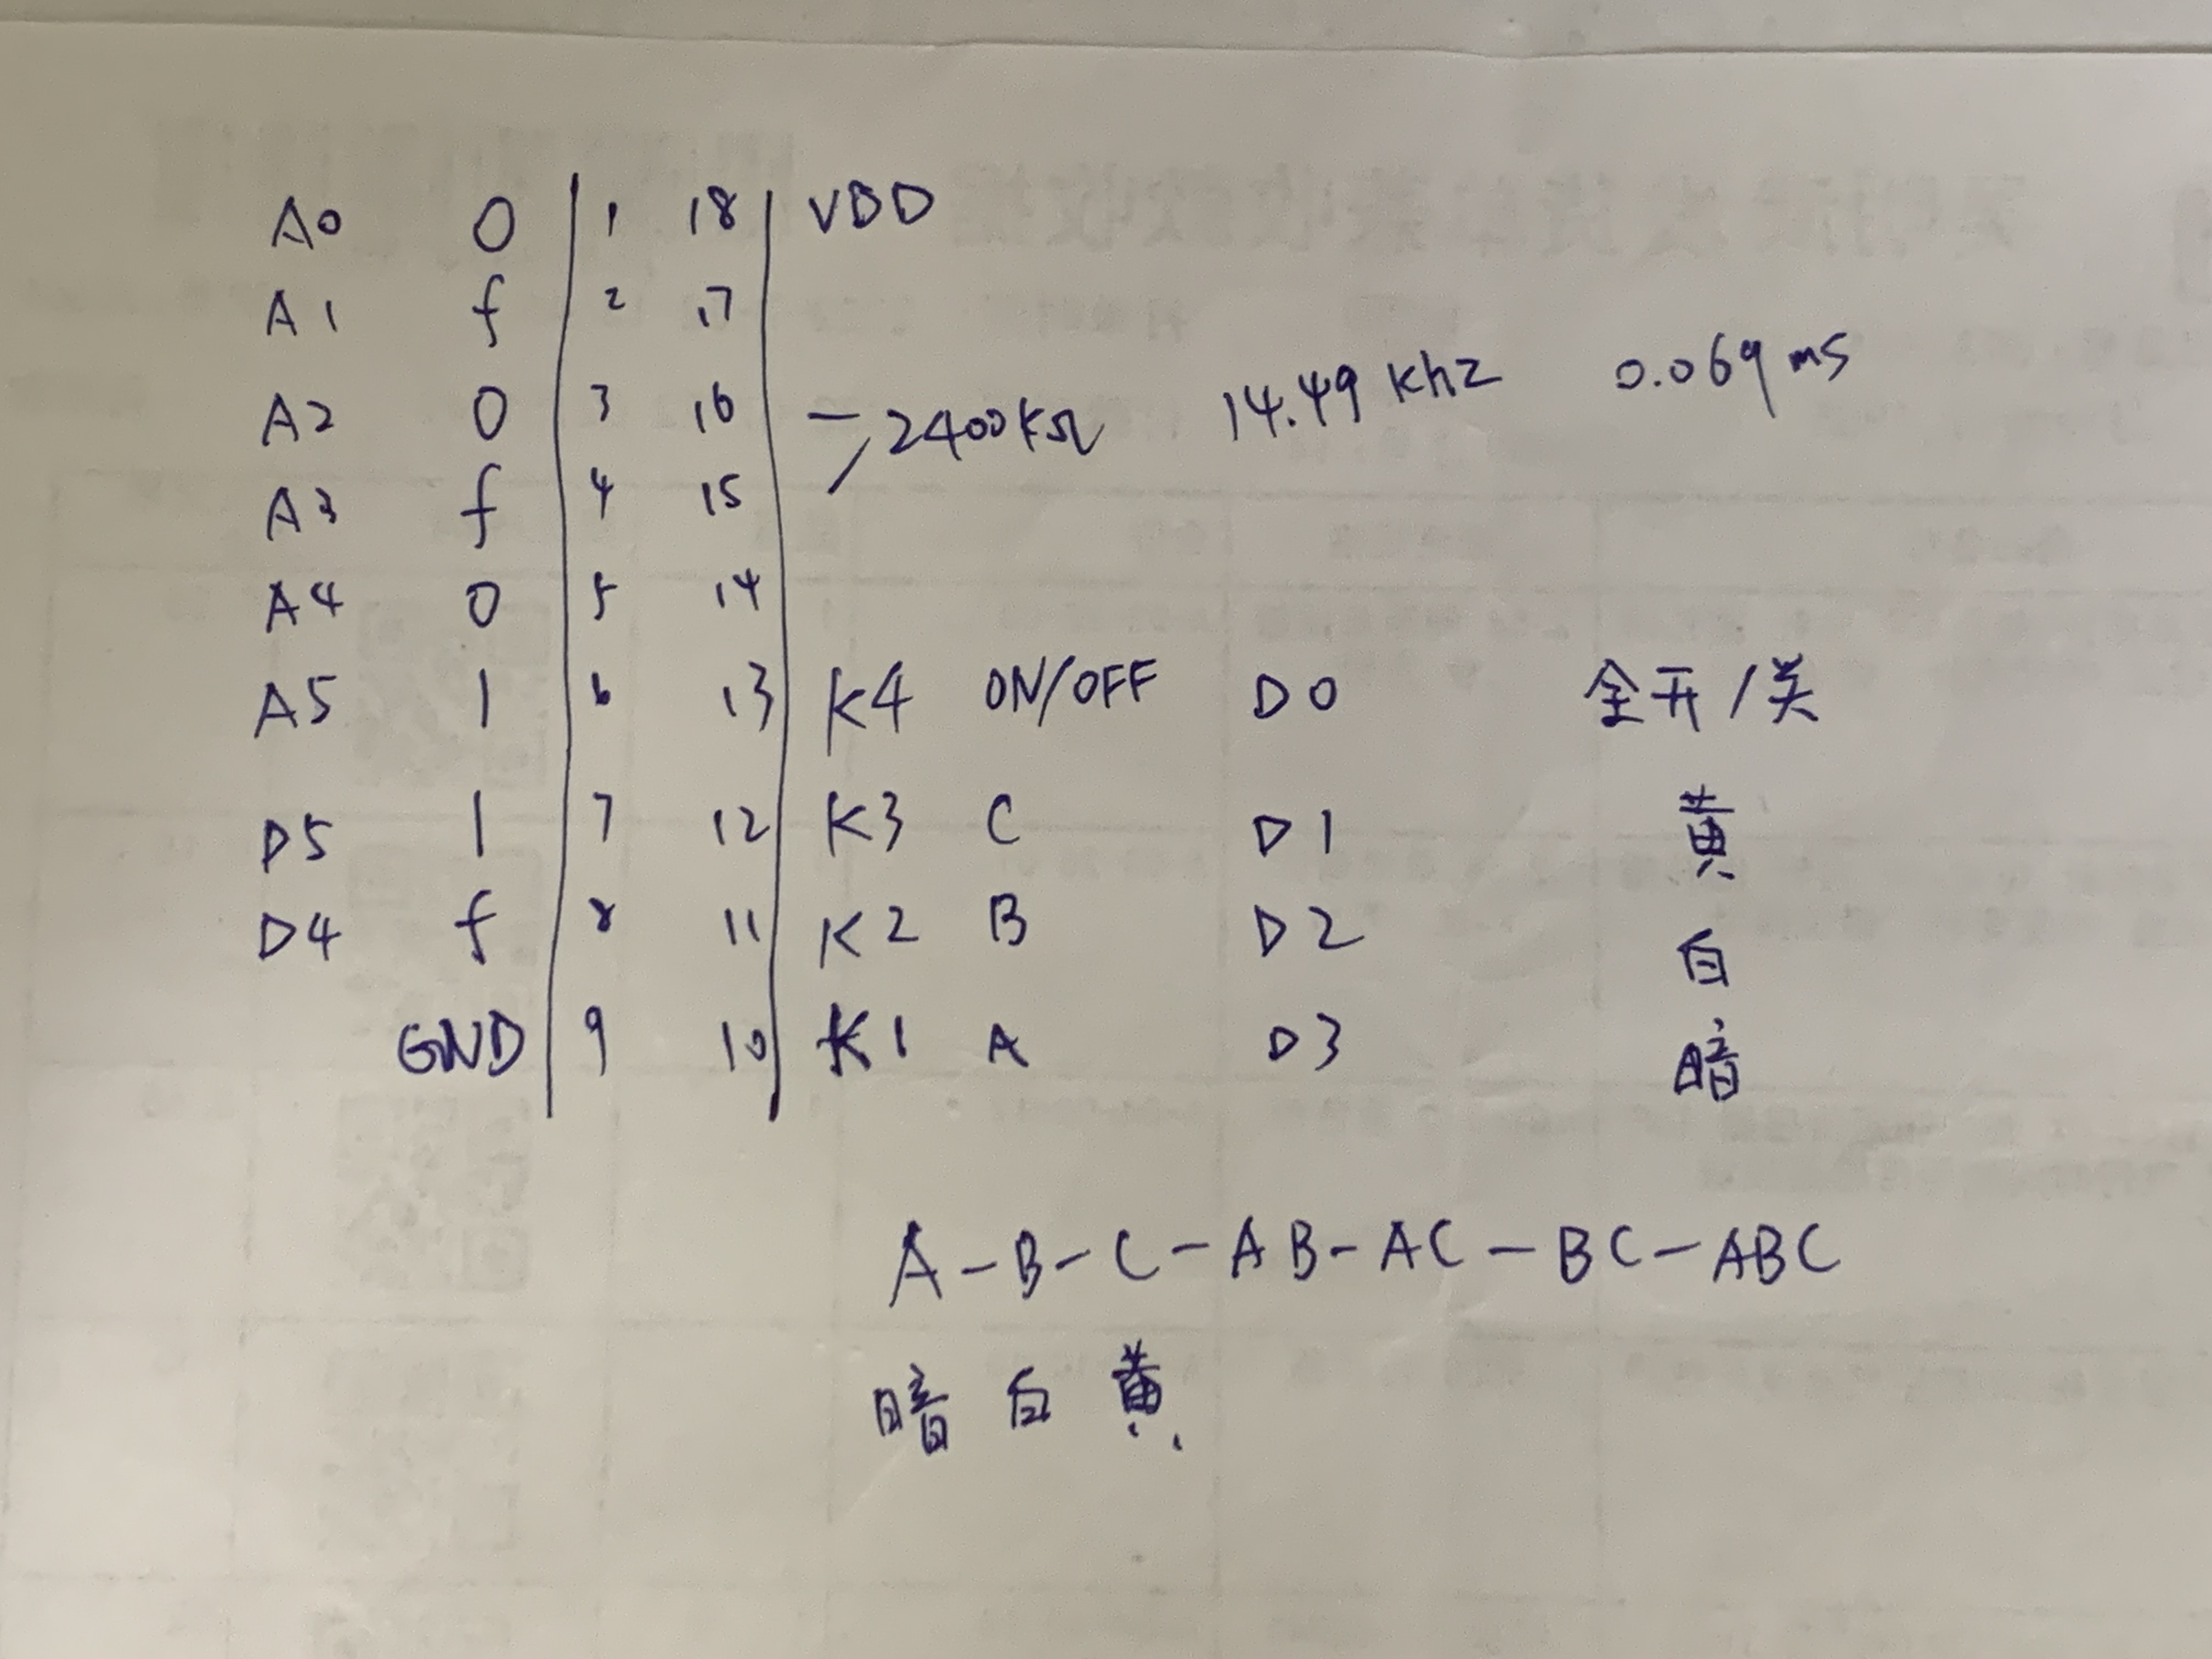 A0 0 1 18 VDD
A1 f 2 17
A2 0 3 16 2400KΩ 14.49 Khz 0.069 ms
A3 f 4 15
A4 0 5 14
A5 1 6 13 K4 ON/OFF D0 全开/关
D5 1 7 12 K3 C D1 黄
D4 f 8 11 K2 B D2 白
GND 9 10 K1 A D3 暗
A-B-C-AB-AC-BC-ABC
暗 白 黄